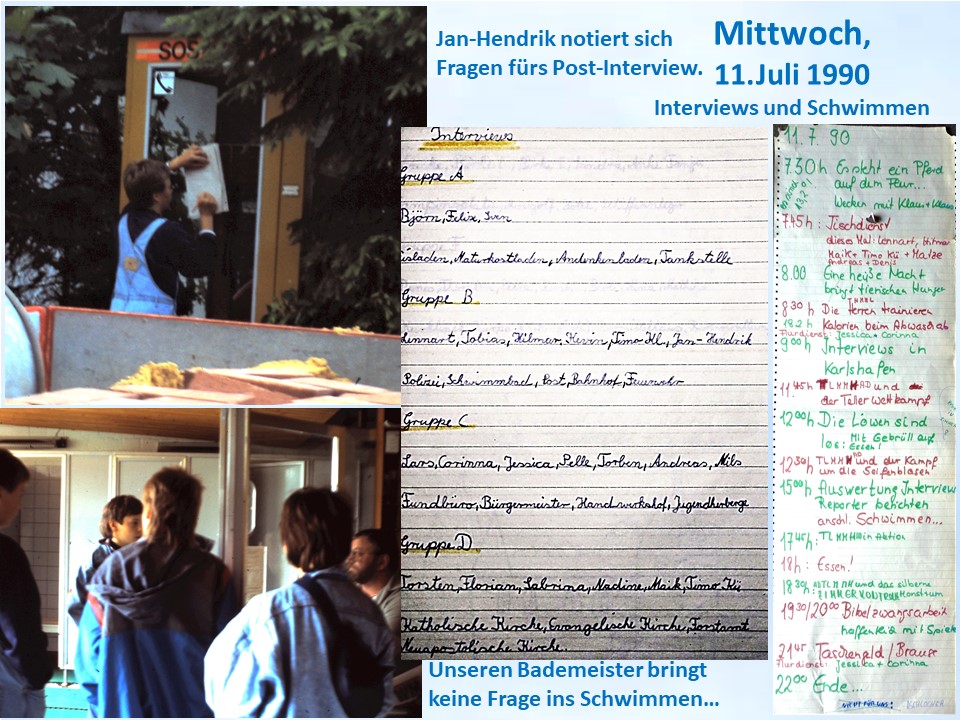 SOS
Jan-Hendrik notiert sich
Fragen fürs Post-Interview.
Mittwoch,
11.Juli 1990
Interviews und Schwimmen
Interviews
Gruppe A
Björn, Felix, Sven
isladen, Naturkostladen, Andenkenladen, Tankstelle
Gruppe B
Lennart, Tobias, Hilmar, Kevin, Timo Hl., Jan-Hendrik
Polizei, Schwimmbad, Post, Bahnhof, Feuerwehr
Gruppe C
Lars, Corinna, Jessica, Pelle, Torben, Andreas, Nils
Fundbüro, Bürgermeister, Handwerkshof, Jugendherberge
Gruppe D
Torsten, Florian, Sabrina, Nadine, Maik, Timo Kü
Katholische Kirche, Evangelische Kirche, Forstamt
Neuapostolische Kirche.
11.7.90
7.30h Es steht ein Pferd
auf dem Flur...
Wecken mit Klaus + Klaus
7.45h: Tischdienst
dieses Mal: Lennart, Hilmar
Maik + Timo Kü + Matze
Andreas + Denis
8.00 Eine heiße Nacht
bringt tierischen Hunger
8.30h Die Herren trainieren
Kalorien beim Abwasch ab
Flurdienst: Jessica + Corinna
9.00h Interviews in
Karlshafen
11.45h und
der Teller Wettkampf
12.00h Die Löwen sind
los: Mit Gebrüll auf
Essen!
12.30h und der Kampf
um die Seifenblasen
15.00h Auswertung Interview
Reporter berichten
anschl. Schwimmen...
17.45h: in Aktion
18h: Essen!
18.30h und das silberne
ZIMMERKONTROLL Monstrum
19.30/20.00 Bibelzwangsarbeit
hoffentlich mit Spiele
21.45 Taschengeld / Brause
Flurdienst: Jessica + Corinna
22.00 Ende...
Unseren Bademeister bringt
keine Frage ins Schwimmen...